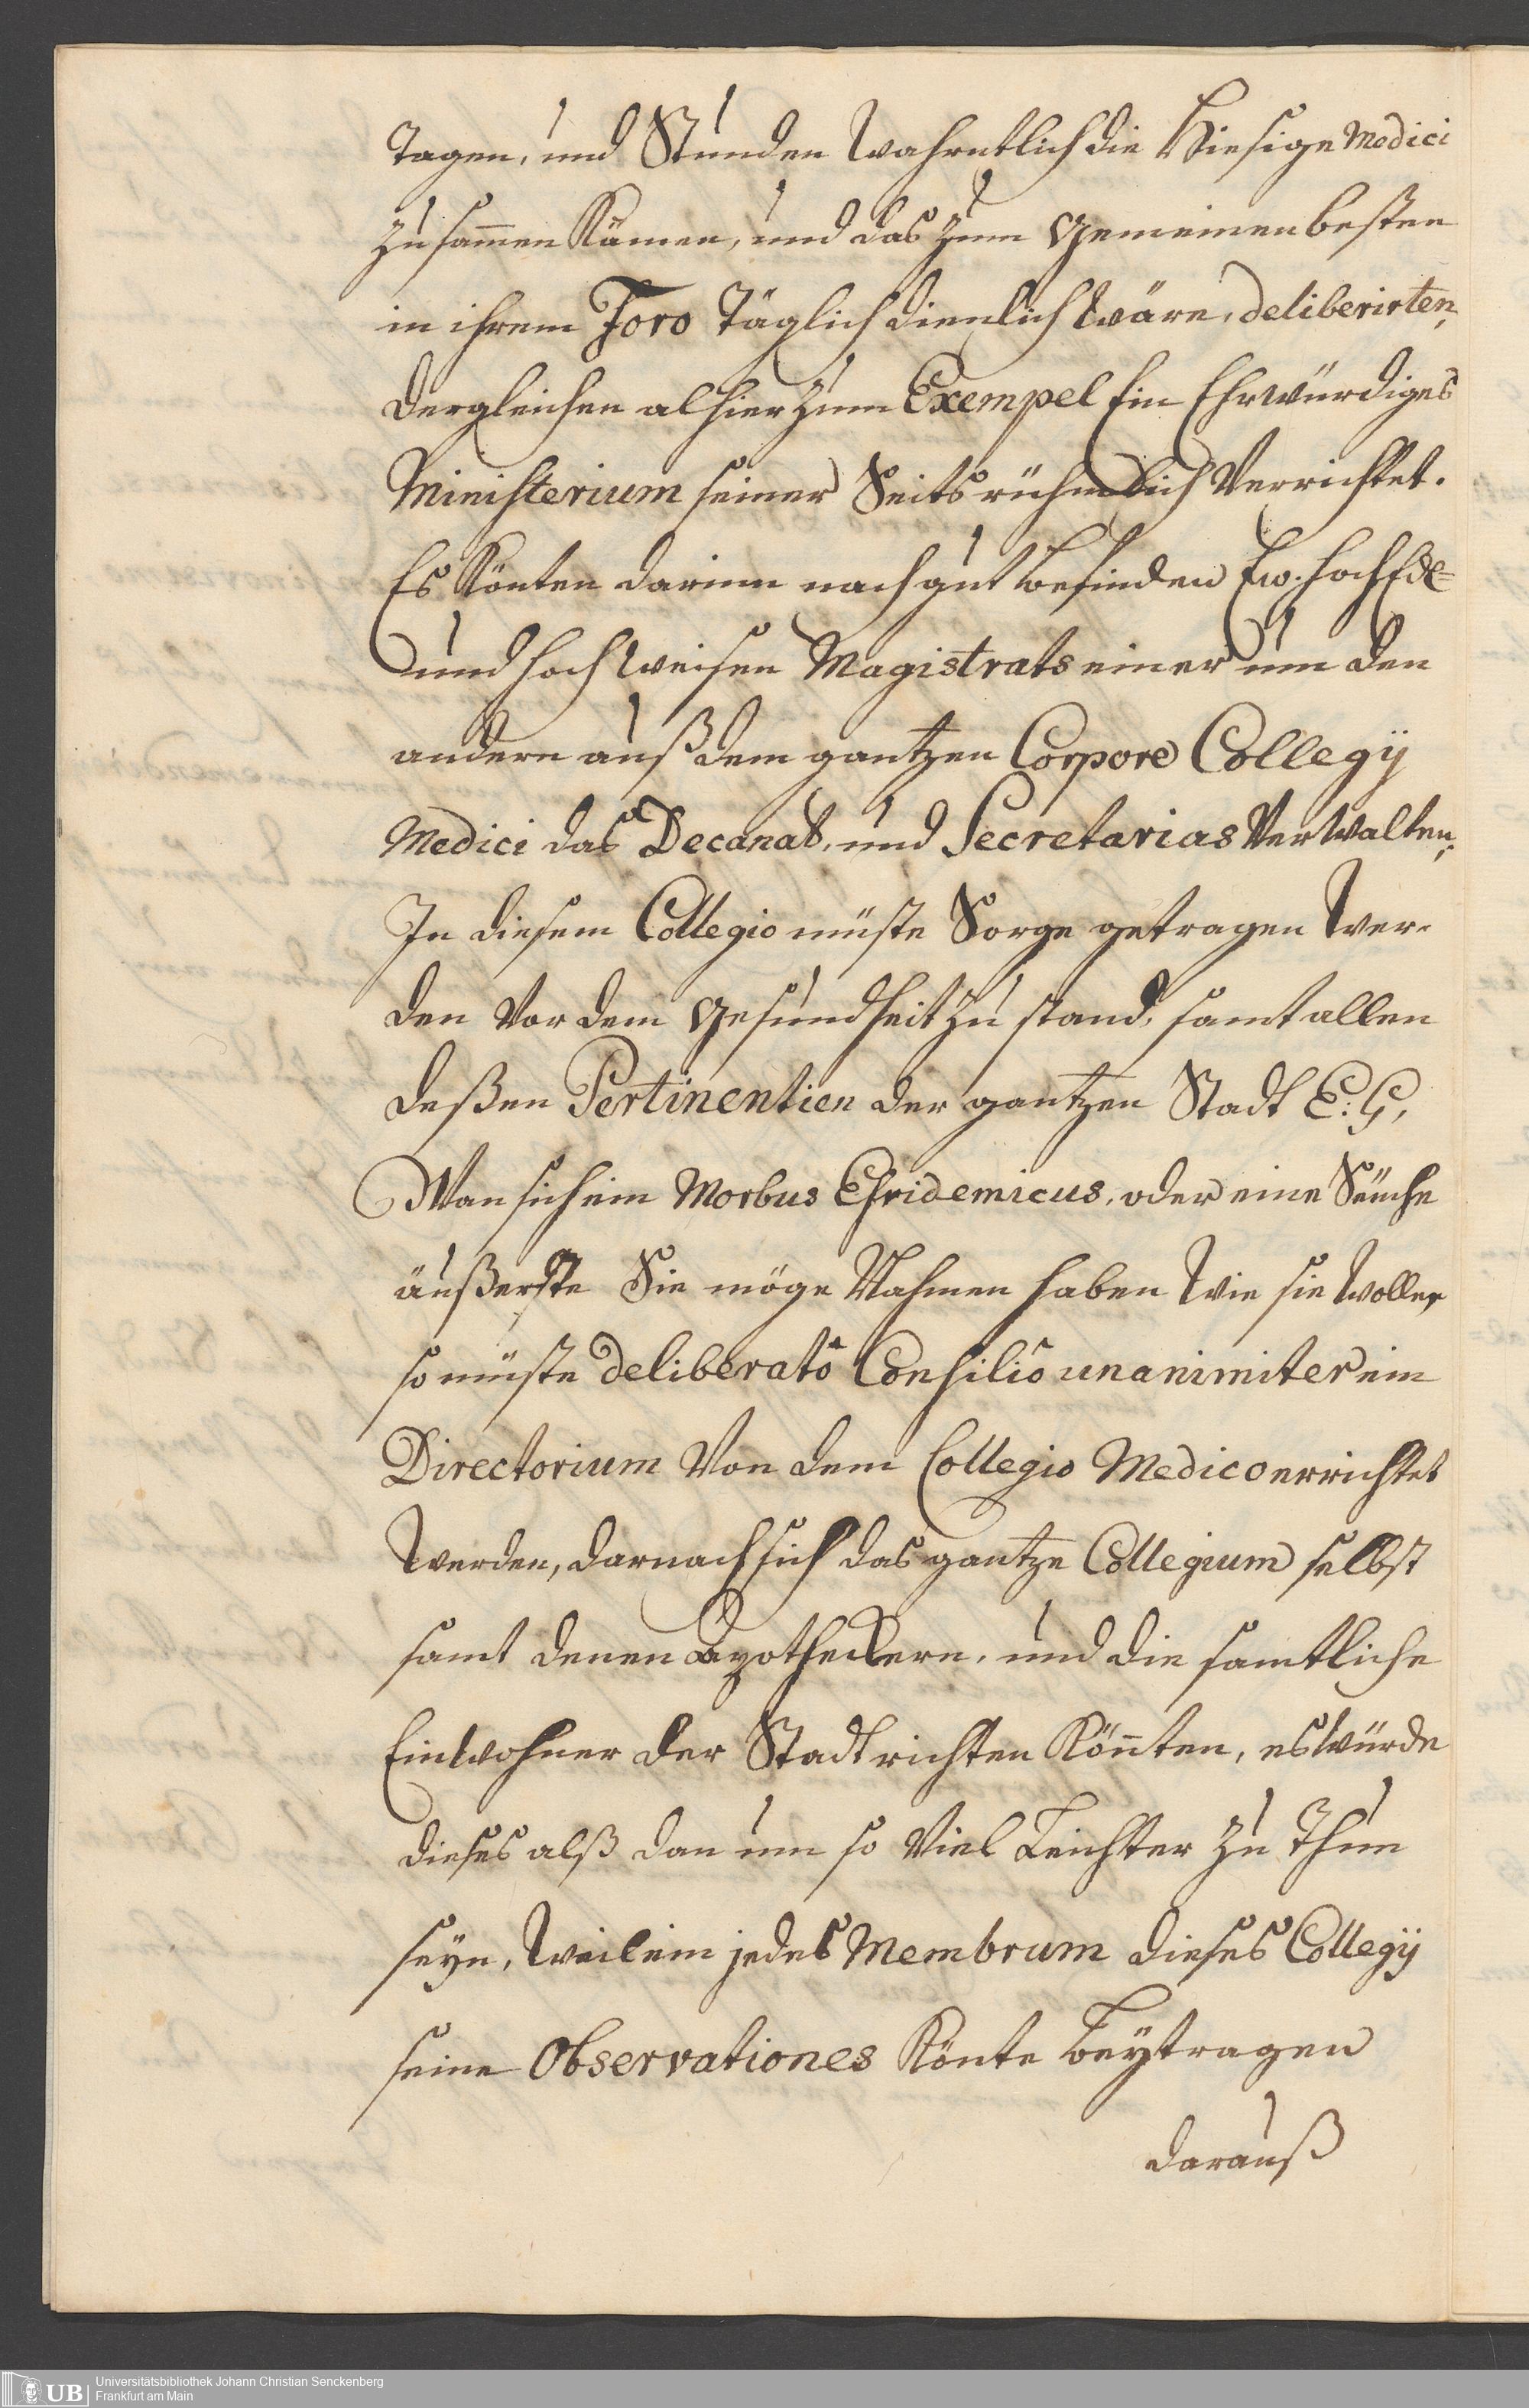 Tagen, und Stunden wahrentlich die Hiesige Medici
zusam̄en Kämen, und das zum gemeinen besten
in ihrem Foro Täglich dienlich wäre, deliberirten,
dergleichen alhier zum Exempel Ein Ehrwürdiges
Ministerium seiner Seits rühmlich Verrichtet.
Es Könten darinn nach gut befinden Ew. HochEdl=
und Hochweisen Magistrats einer um den
andern auß dem gantzen Corpore Collegÿ
Medici das Decanat, und Secretarias Verwalten;
In diesem Collegio müste Sorge getragen wer-
den Vor dem gesundheit zu stand, samt allen
deßen Pertinentien der gantzen Stadt E: G,
Wan sich ein Morbus Epidemicus, oder eine Seüche
äußerste Sie möge Nahmen haben wie sie wolle,
so müste deliberatô Consiliô unanimiter ein
Directorium Von dem Collegio Medico errichtet
werden, darnach sich das gantze Collegium selbst
samt denen Apotheckern, und die samtliche
Einwohner der Stadt richten Kön̄ten, es würde
dieses alß dan um so Viel Leichter zu Thun
seyn, weil ein jedes Membrum dieses Collegÿ
seine Observationes Könte beÿtragen
darauß
UB
Universitätsbibliothek Johann Christian Senckenberg
Frankfurt am Main